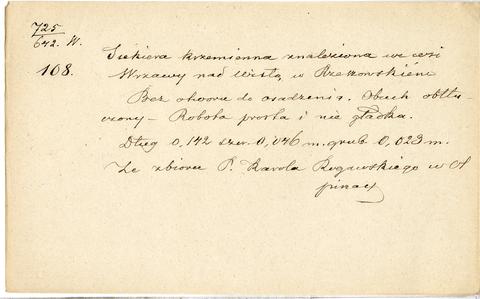 725
642. W.
108.
Siekiera krzemienna znaleziona we wsi
Wrzawy nad Wisłą w Rzeszowskiém
Bez otworu do osadzenia. Obuch obtłu-
czony – Robota prosta i nie gładka.
Dług 0,142 szer. 0,046 m. grub 0,023 m.
Ze zbioru P. Karola Rogawskiego w O
pinacy